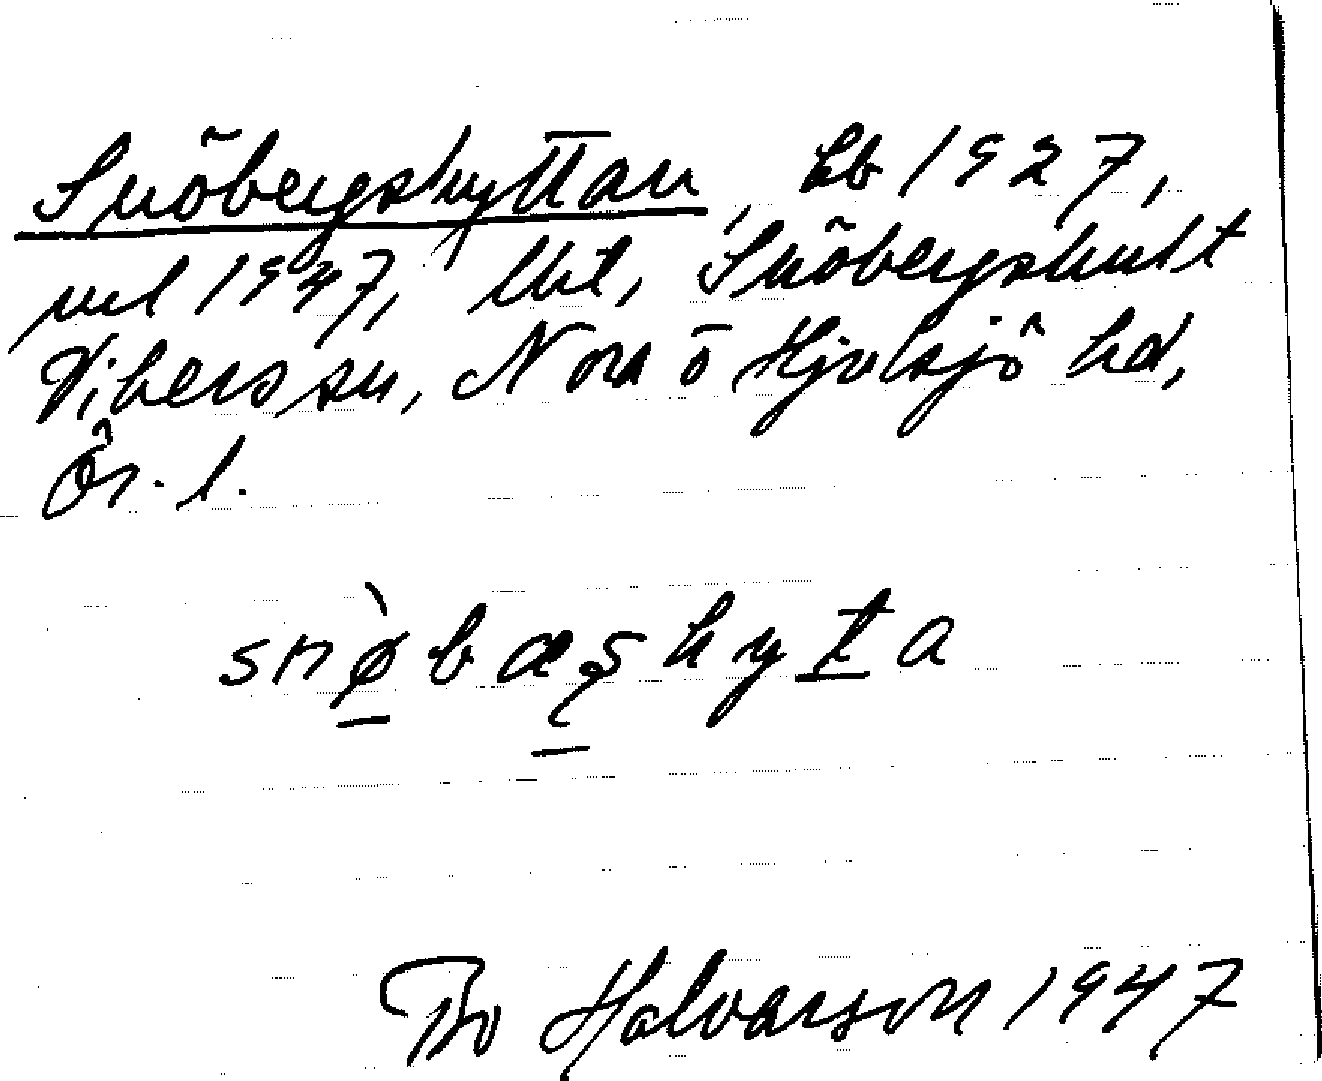 Snöbergshyttan, Eb 1927,
ml 1947, Uht, Snöbergshult
Vibers sn, Nora o Hjulsjö hd,
Ör. l.
snø̀bæşhyta
Bo Halvarson 1947